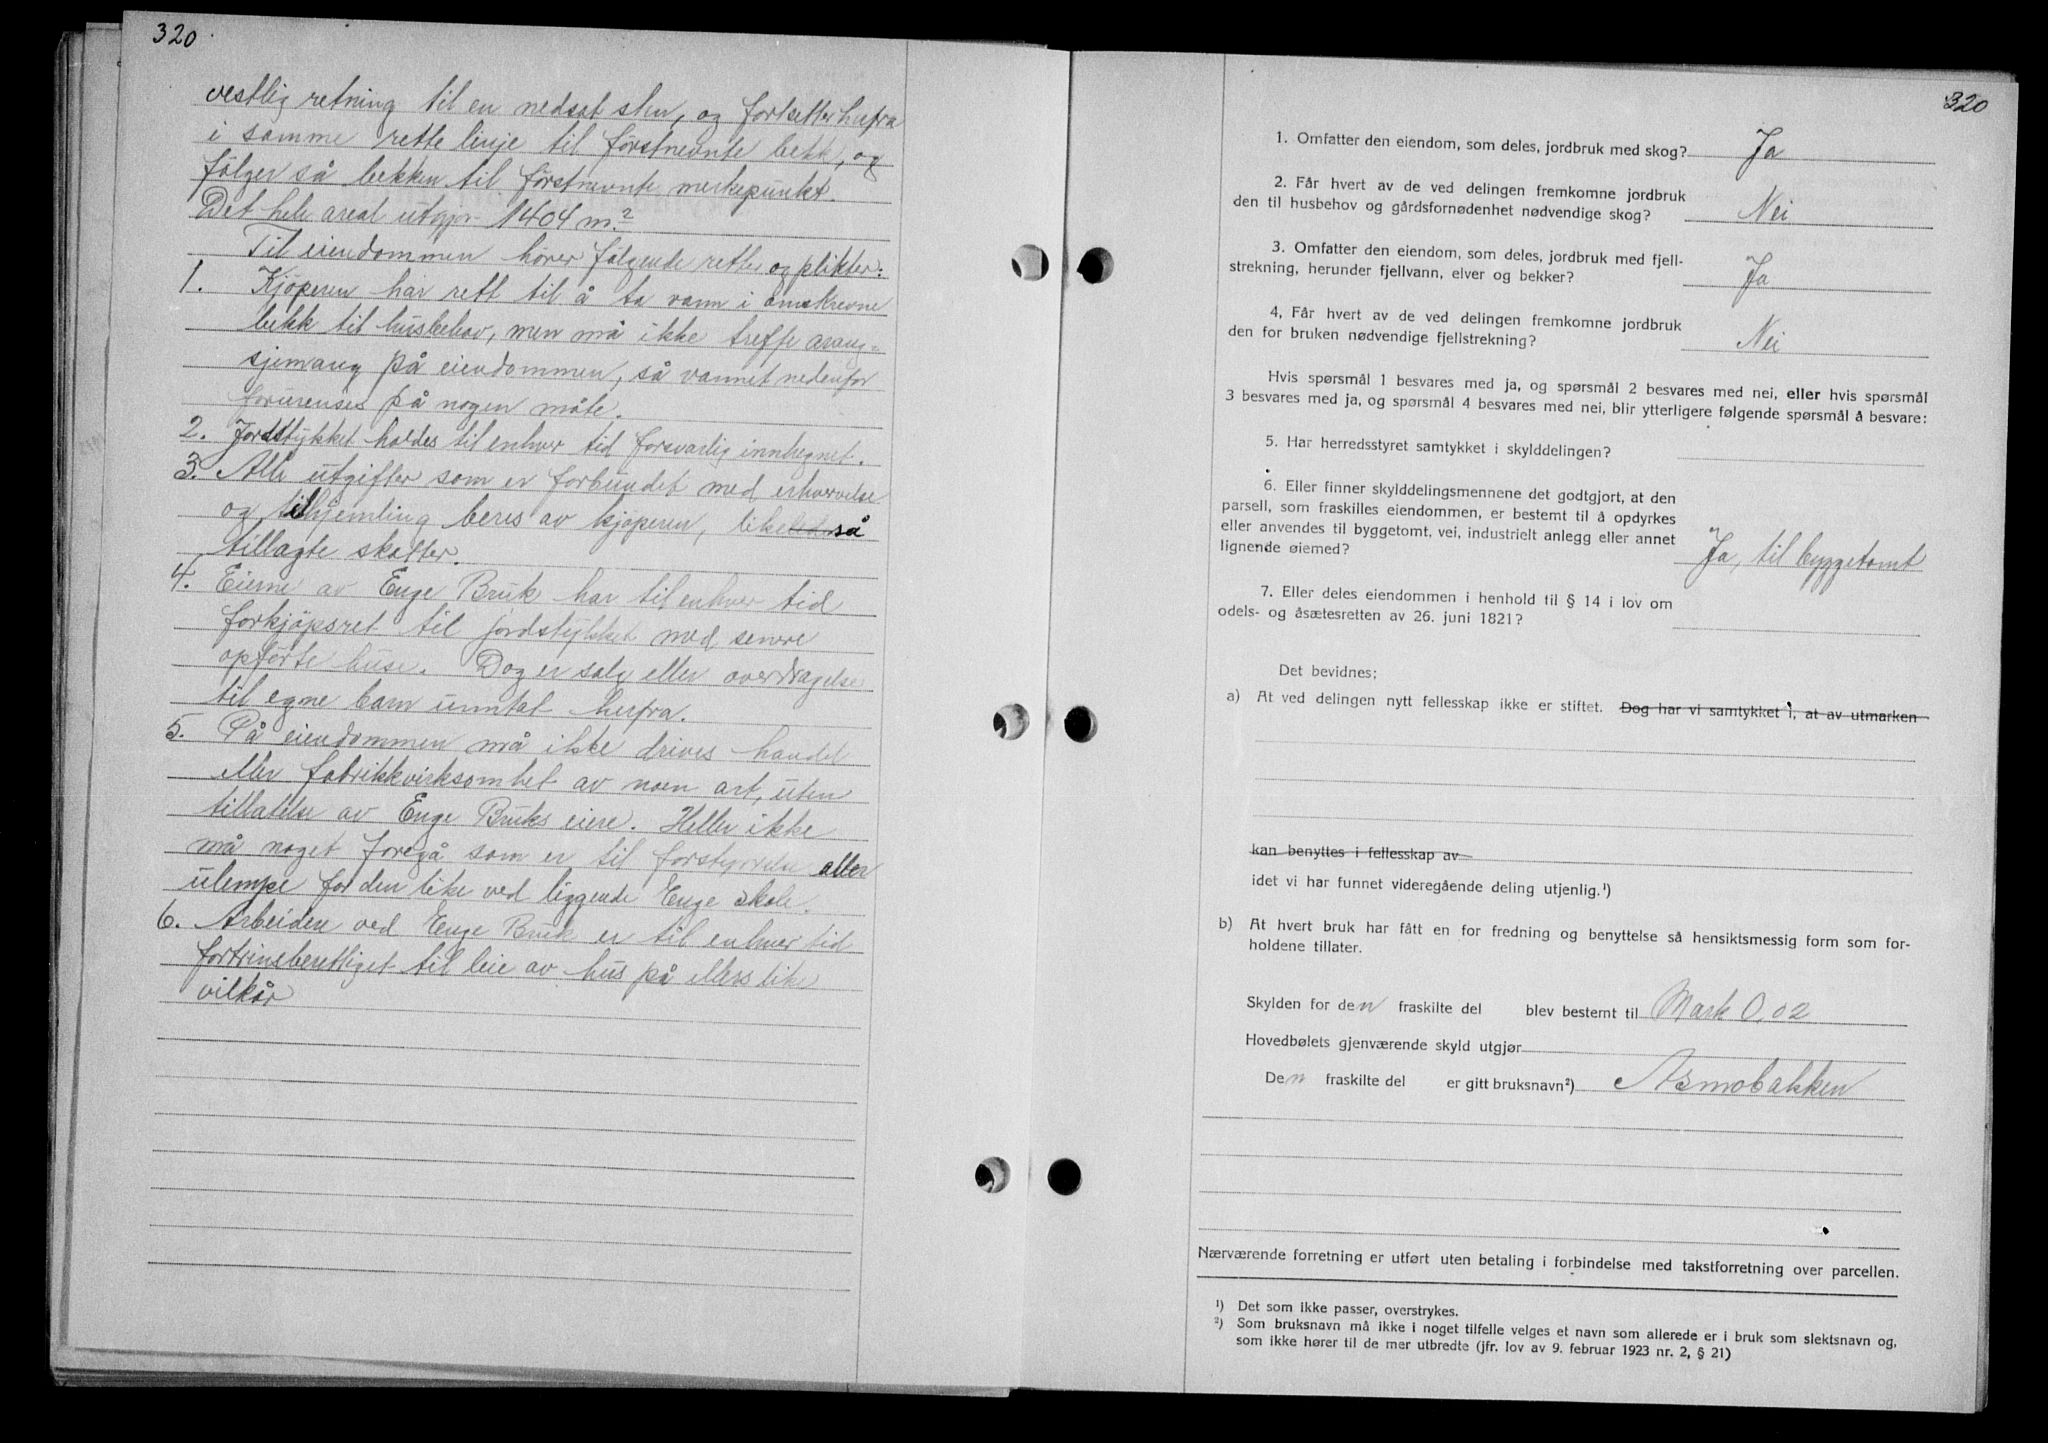 320
vestlig retning til en nedsat sten, og fortsetter herfra
i samme rette linje til förstnevnte bekk, og
fölger så bekken til förstnevnte merkepunkt.
Det hele areal utgjör 1404 m.²
Til eiendommen hörer fölgende retter og plikter:
1. Kjöperen har rett til å ta vann i omskrevne
bekk til husbehov, men må ikke treffe arang-
sjemang på eiendommen, så vannet nedenfor
forurenses på nogen måte.
2. Jordstykket holdes til enhver tid forsvarlig innhegnet.
3. Alle utgifter som er forbundet med erhvervelse
og tilhjemling beres av kjöperen, likeså
tillagte skatter.
4. Eierne av Enge Bruk har til enhver tid
forkjöpsret til jordstykket med senere
opförte huse. Dog er salg eller overdragelse
til egne barn unntat herfra.
5. På eiendommen må ikke drives handel
eller fabrikkvirksomhet av noen art, uten
tillatelse av Enge Bruks eiere. Heller ikke
må noget foregå som er til forstyrrelse eller
ulempe for den like ved liggende Enge skole.
6. Arbeidere ved Enge Bruk er til enhver tid
fortrinsberettiget til leie av hus på ellers like
vilkår
320
1. Omfatter den eiendom, som deles, jordbruk med skog? Ja
2. Får hvert av de ved delingen fremkomne jordbruk
den til husbehov og gårdsfornødenhet nødvendige skog? Nei
3. Omfatter den eiendom, som deles, jordbruk med fjell-
strekning, herunder fjellvann, elver og bekker? Ja
4, Får hvert av de ved delingen fremkomne jordbruk
den for bruken nødvendige fjellstrekning? Nei
Hvis spørsmål 1 besvares med ja, og spørsmål 2 besvares med nei, eller hvis spørsmål
3 besvares med ja, og spørsmål 4 besvares med nei, blir ytterligere følgende spørsmål å besvare:
5. Har herredsstyret samtykket i skylddelingen?
6. Eller finner skylddelingsmennene det godtgjort, at den
parsell, som fraskilles eiendommen, er bestemt til å opdyrkes
eller anvendes til byggetomt, vei, industrielt anlegg eller annet
lignende øiemed? Ja, til byggetomt
7. Eller deles eiendommen i henhold til § 14 i lov om
odels- og åsætesretten av 26. juni 1821?
Det bevidnes;
a) At ved delingen nytt fellesskap ikke er stiftet. Dog har vi samtykket i, at av utmarken
kan benyttes i fellesskap av
idet vi har funnet videregående deling utjenlig.¹)
b) At hvert bruk har fått en for fredning og benyttelse så hensiktsmessig form som for-
holdene tillater.
Skylden for den fraskilte del blev bestemt til Mark 0,02
Hovedbølets gjenværende skyld utgjør
Den fraskilte del er gitt bruksnavn²) Asmobakken
Nærværende forretning er utført uten betaling i forbindelse med takstforretning over parcellen.
¹) Det som ikke passer, overstrykes.
²) Som bruksnavn må ikke i noget tilfelle velges et navn som allerede er i bruk som slektsnavn og,
som ikke hører til de mer utbredte (jfr. lov av 9. februar 1923 nr. 2, § 21)